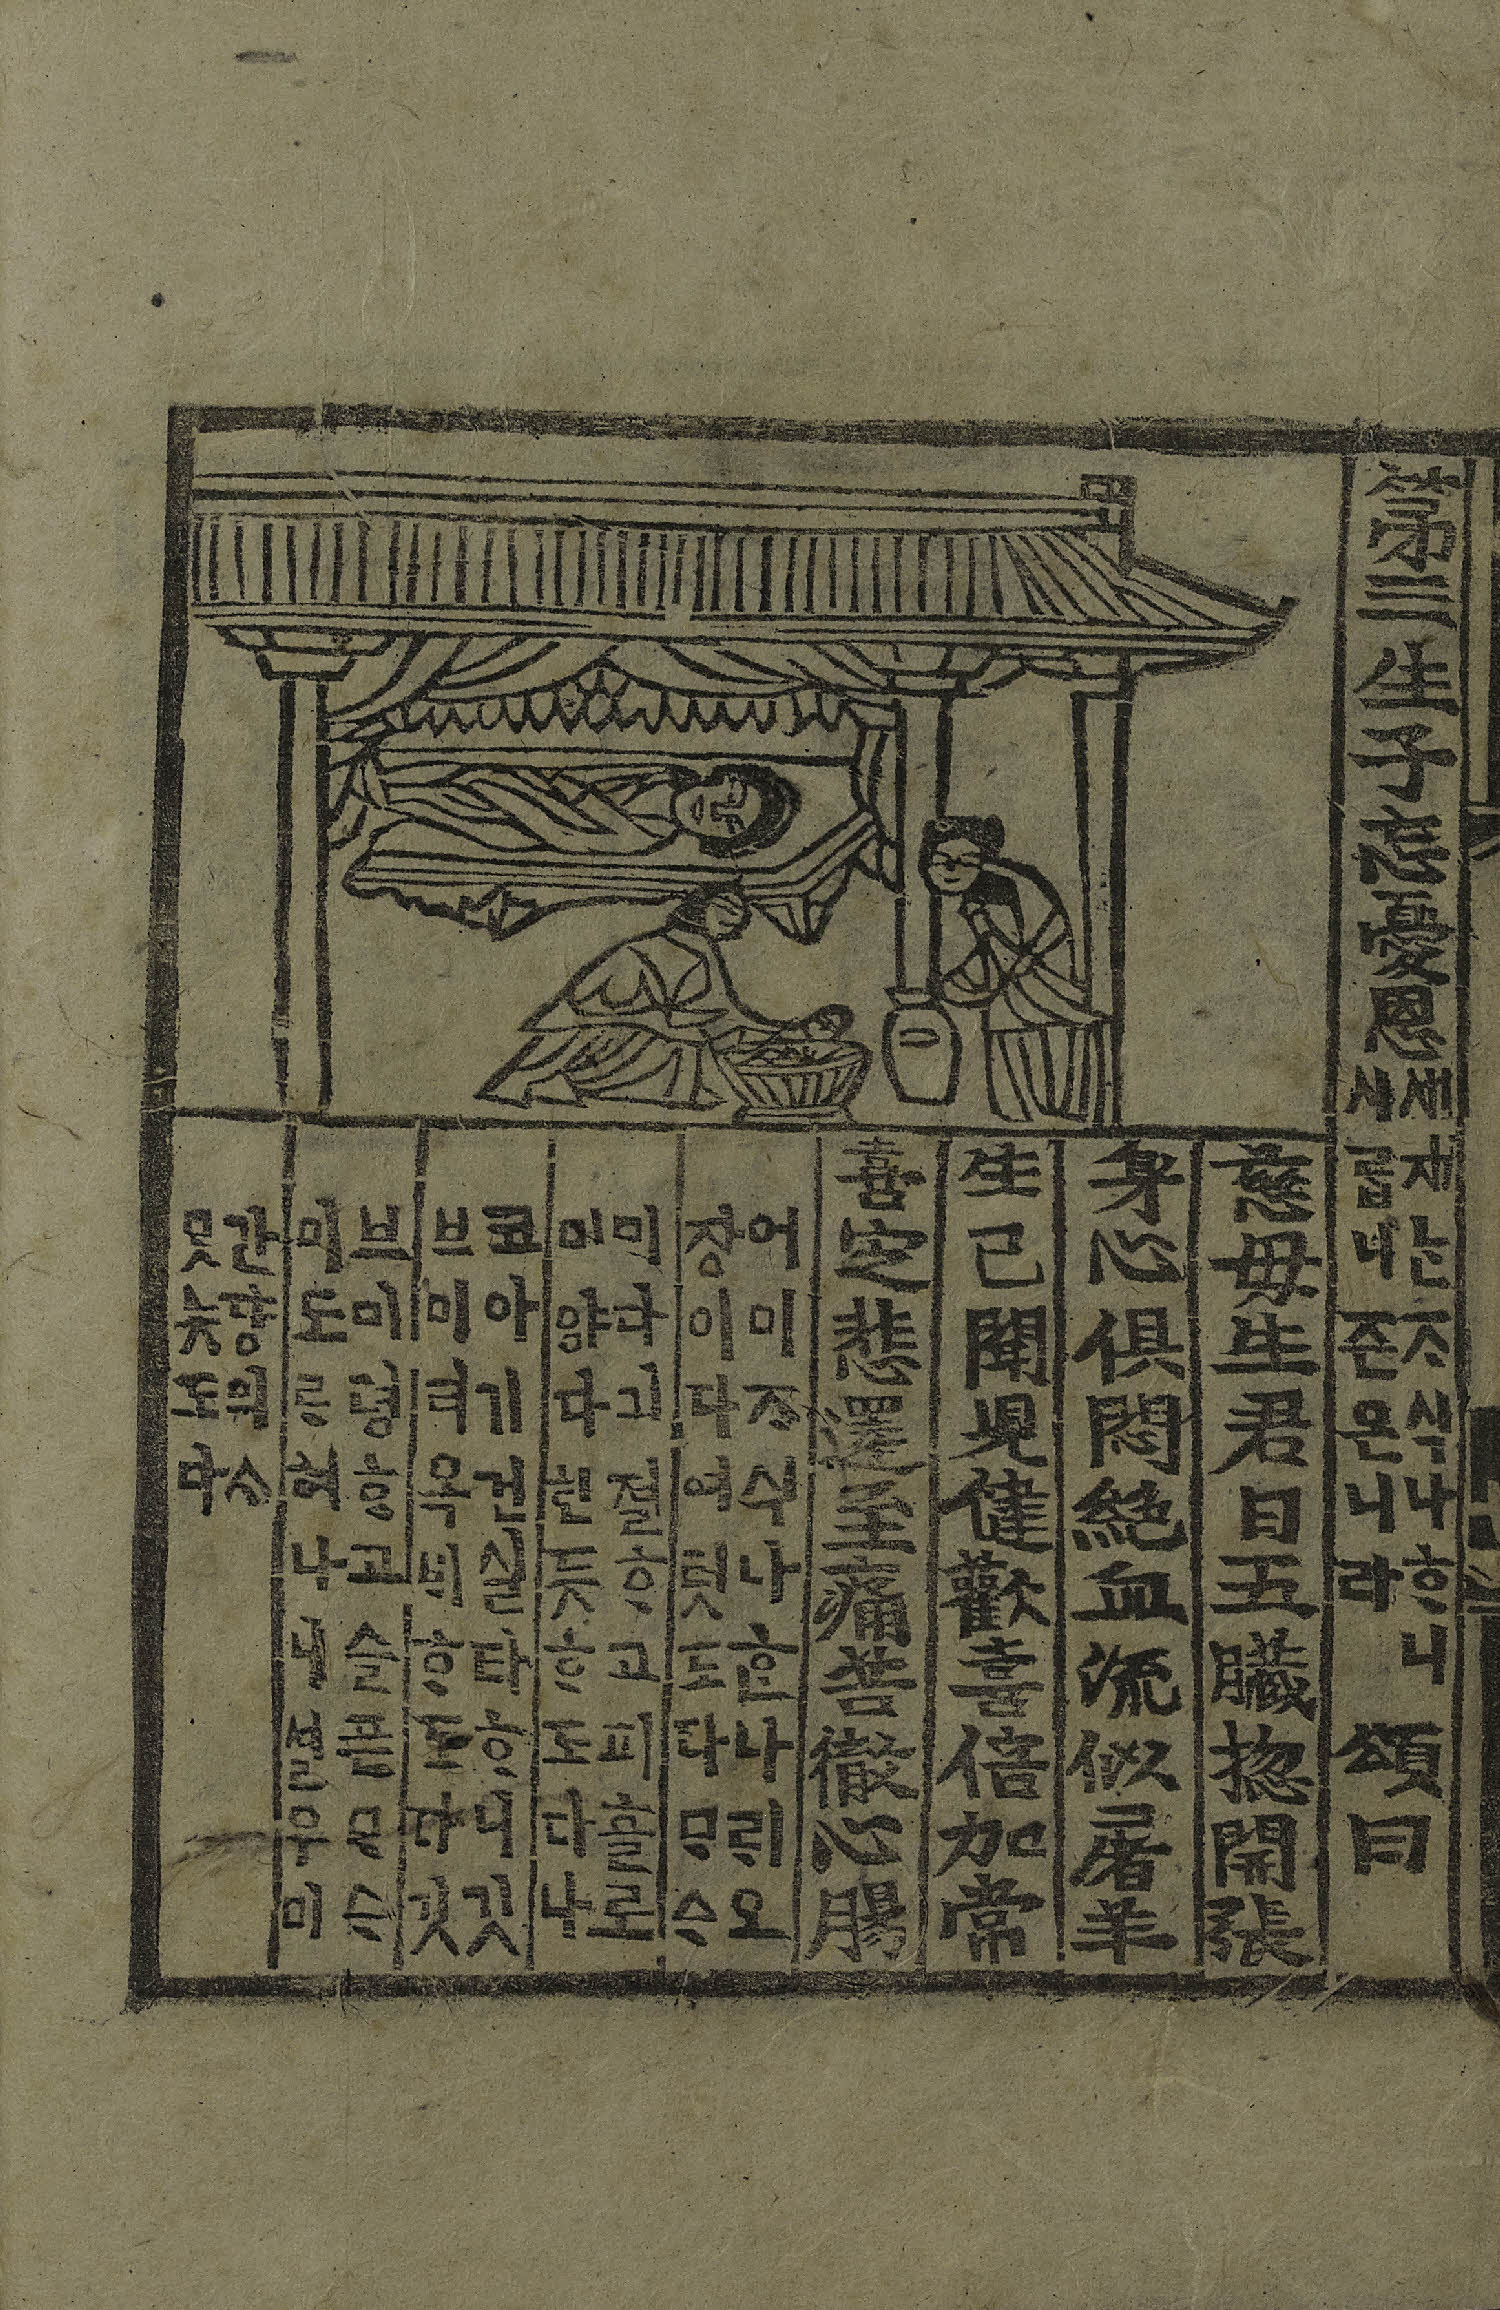 第三生子忘憂恩
세재ᄂᆞᆫᄌᆞ식나ᄒᆞ니
시름니존온니라
頌曰
慈母生君日五臟揔開張
身心俱悶絶血流似屠羊
生已聞児健歡喜倍加常
喜定悲還至痛苦徹心腸
어미ᄌᆞ식나ᄒᆞᆫ나리오
장이다여텻도다ᄆᆞᆼᄉᆞ
미다긔졀ᄒᆞ고피흘로
미양다힌ᄃᆞᆺᄒᆞ도다나
코아기건실타ᄒᆞ니깃
브미더옥ᄒᆞᆼ도다깃
브미뎡ᄒᆞᆼ고슬픔ᄆᆞᆼᄉᆞ
미도ᄅᆞ혀나니셜우미
간댱의ᄉᆞ
ᄆᆞᆺᄂᆞᆺ도다